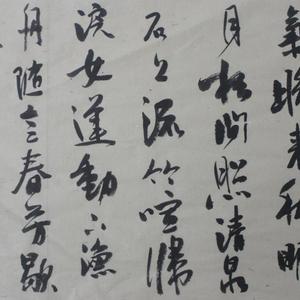 氣晚來秋明
月松間照清泉
石上流竹喧歸
浣女蓮動下漁
舟隨意春芳歇